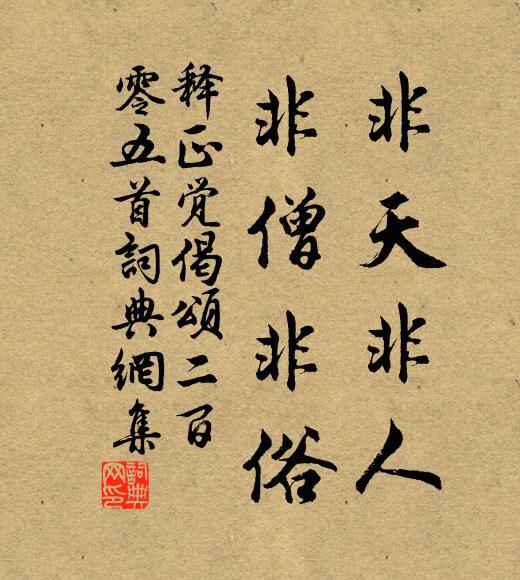 非天非人
非僧非俗
释正觉偈颂二百
零五首詞典網集
詞典网印